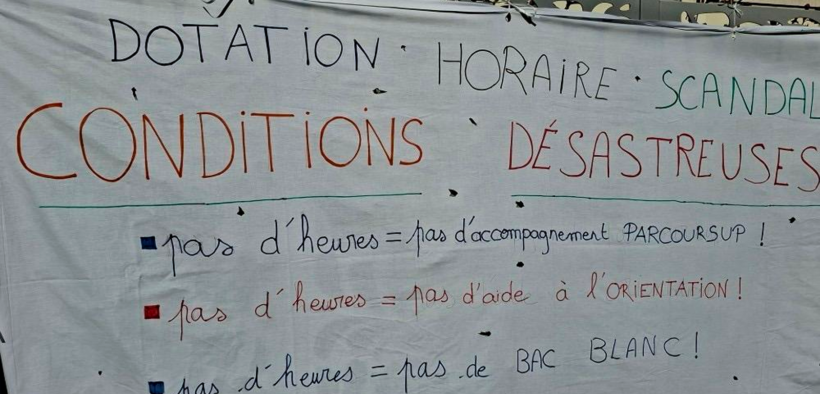 DOTATION · HORAIRE · SCANDAL
CONDITIONS DÉSASTREUSES
▪ pas d'heures = pas d'accompagnement PARCOURSUP !
▪ pas d'heures = pas d'aide à l'ORIENTATION !
▪ pas d'heures = pas de BAC BLANC !